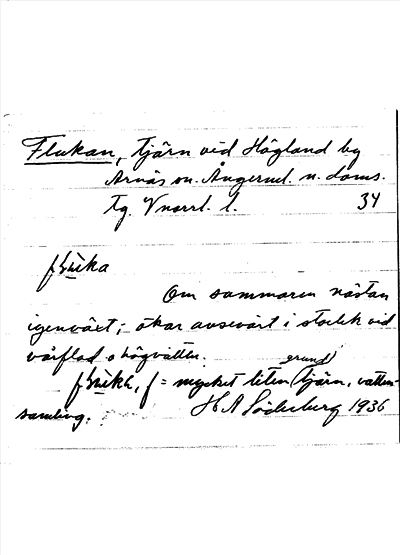 Flukan, tjärn vid Högland by
Arnäs sn. Ångerml. n. doms.
tg. Vnorrl. l. 34
Om sommaren nästan
igenväxt; ökar avsevärt i storlek vid
vårflod o högvatten.
f = mycket liten (grund) tjärn, vatten-
samling. H A Söderberg 1936